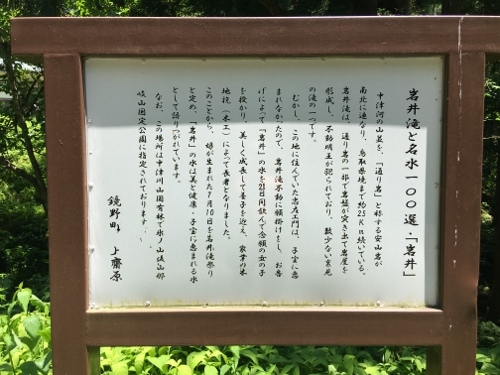 岩井滝と名水一〇〇選・「岩井」
中津河の山並を、「通り岩」と称する安山岩が
南北に連なり、鳥取県境まで約25Km続いている。
岩井滝は、通り岩の一部で岩盤が突き出て岩屋を
形成し、不動明王が祀られており、数少ない裏見
の滝の一つです。
むかし、この地に住んでいた忠左ヱ門は、子宝に恵
まれなかったので、岩井滝不動に願掛けをし、お告
げによって「岩井」の水を21日間飲んで念願の女の子
を授かり、美しく成長して養子を迎え、家業の木
地挽(木工)によって長者となりました。
このことから、娘が生まれた7月10日を岩井滝祭り
と定め、「岩井」の水は美と健康・子宝に恵まれる水
として語りつがれています。
なお、この場所は中津川山国有林で氷ノ山後山那
岐山国定公園に指定されております。
鏡野町 上齋原